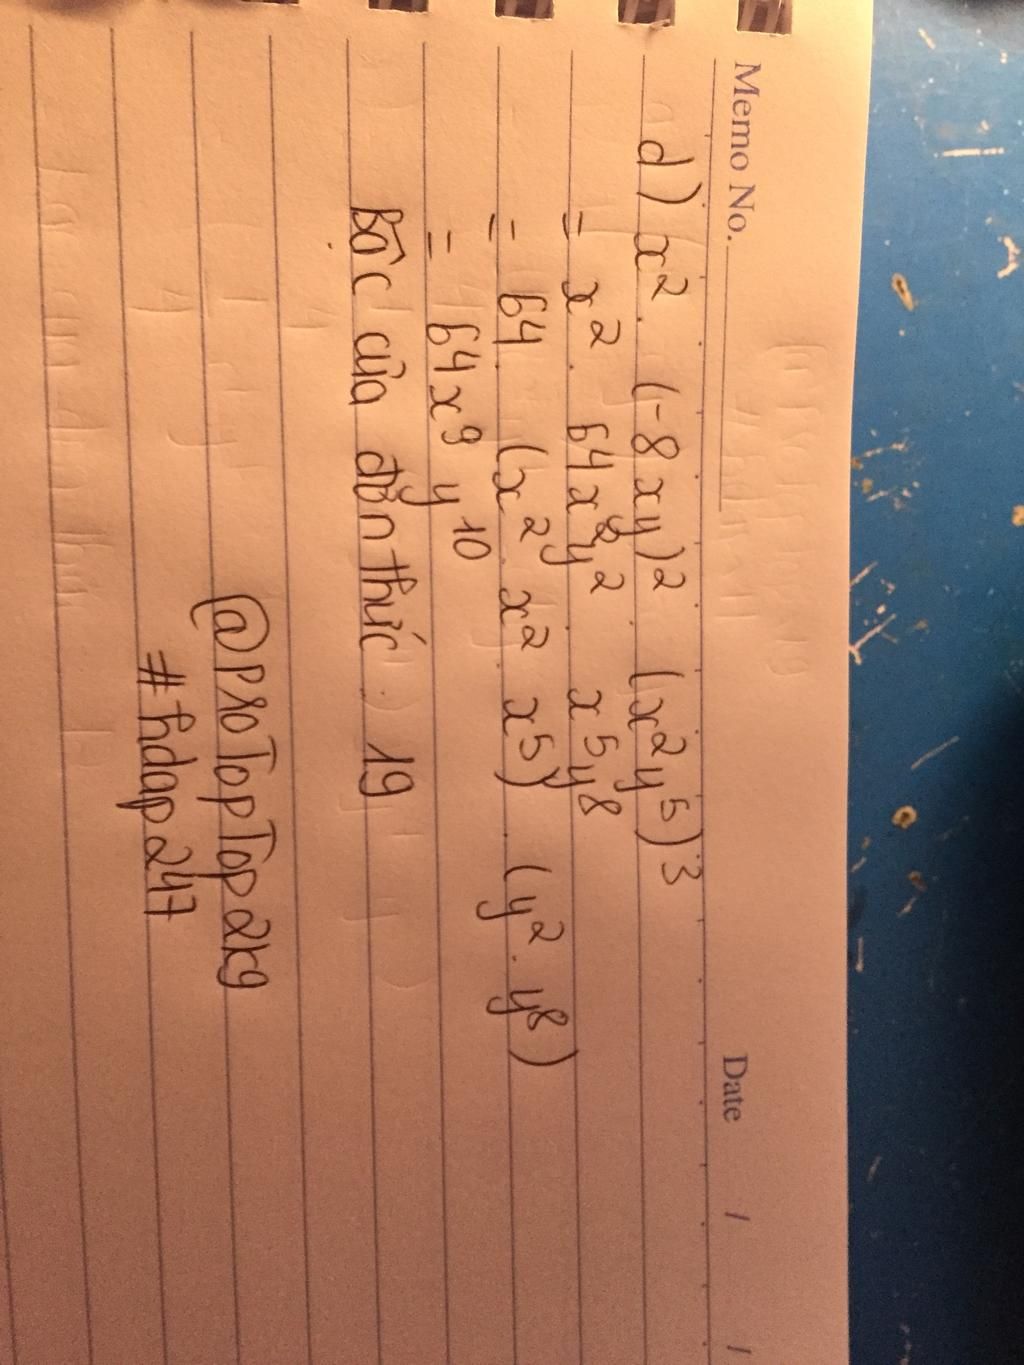 Memo No. Date / /
d) x². (-8xy)². (x²y⁵)³
= x². 64x²y². x⁵y⁸
= 64. (x². x². x⁵). (y². y⁸)
= 64x⁹y¹⁰
Bậc của đơn thức: 19
@ProTopTop2k9
#hdap247